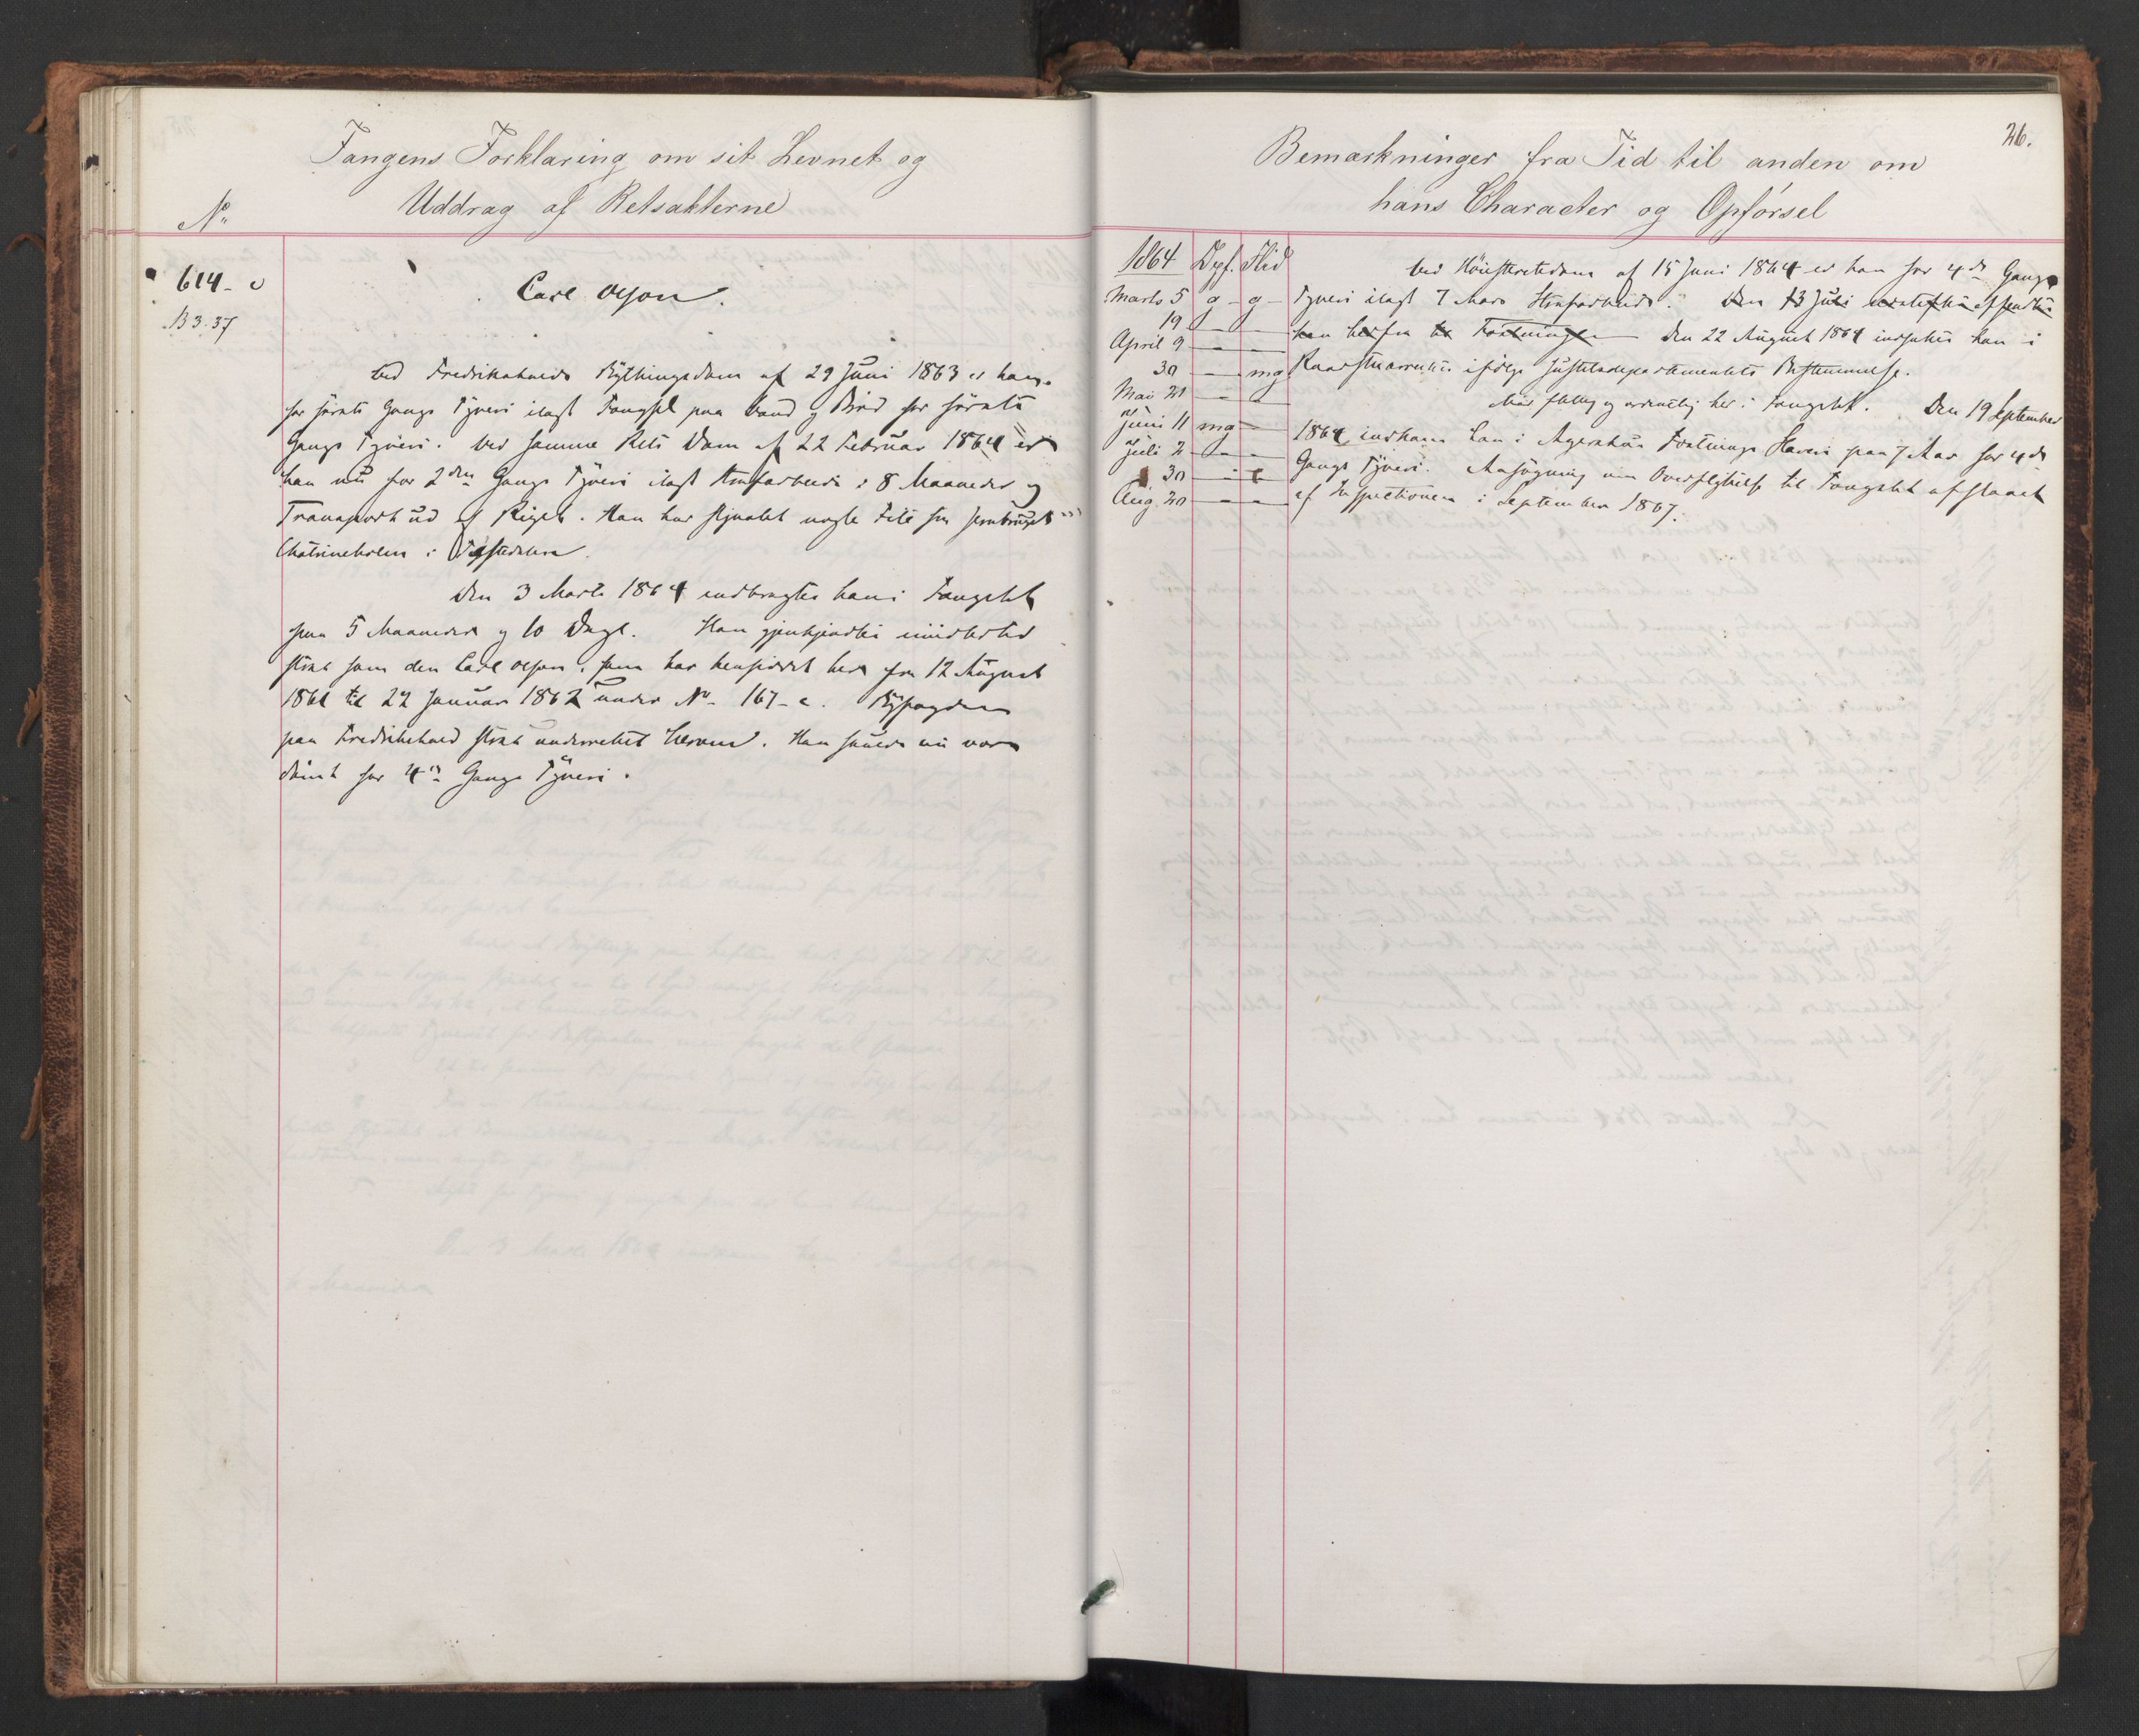 Fangens Forklaring om sit Levnet og
Uddrag af Retsakterne
No
614-c
B 3.37
Carl Olson.
Ved Fredrikshalds Bythingsdom af 29 Juni 1863 er han
for første Gangs Tyveri ilagt Fængsel paa Vand og Brød for første
Gangs Tyveri. Ved samme Rets Dom af 22 Februar 1864 er
han nu for 2den Gangs Tyveri ilagt Strafarbeide i 8 Maaneder og
Transport ud af Riget. Han har stjaalet nogle File fra Jernbruget
Chatrineholm i
Den 3 Marts 1864 indbragtes han i Fængslet
paa 5 Maaneder og 10 Dage. Han gjenkjendtes imidlertid
strax som den Carl Olson, som har hensiddet her fra 12 August
1861 til 22 Januar 1862 under No 167-c. Byfogden
paa Fredrikshald strax underrettet herom. Han skulde nu være
dömt for 4de Gangs Tyveri.
26.
Bemærkninger fra Tid til anden om
hans Character og Opførsel
1864 Opf. Flid
Marts 5 g - g -
19 - -
April 9 - -
30 - mg
Mai 21 - -
Juni 11 mg -
Juli 2 - -
30 - -
Aug. 20 - -
Ved Höiesteretsdom af 15 Juni 1864 er han for 4de Gangs
Tyveri ilagt 7 Aars Strafarbeide. Den 13 Juli
han herfra til Fæstningen Den 22 August 1864 indsattes han i
Raadstuarresten ifølge Justitsdepartementets Bestemmelse.
Var flittig og ordentlig her i Fængslet. Den 19 September
1864 indkom han i Agershus Fæstnings Slaveri paa 7 Aar for 4de
Gangs Tyveri. Ansögning om Overflyttelse til Fængslet afslaaet
af Inspectionen i September 1867.